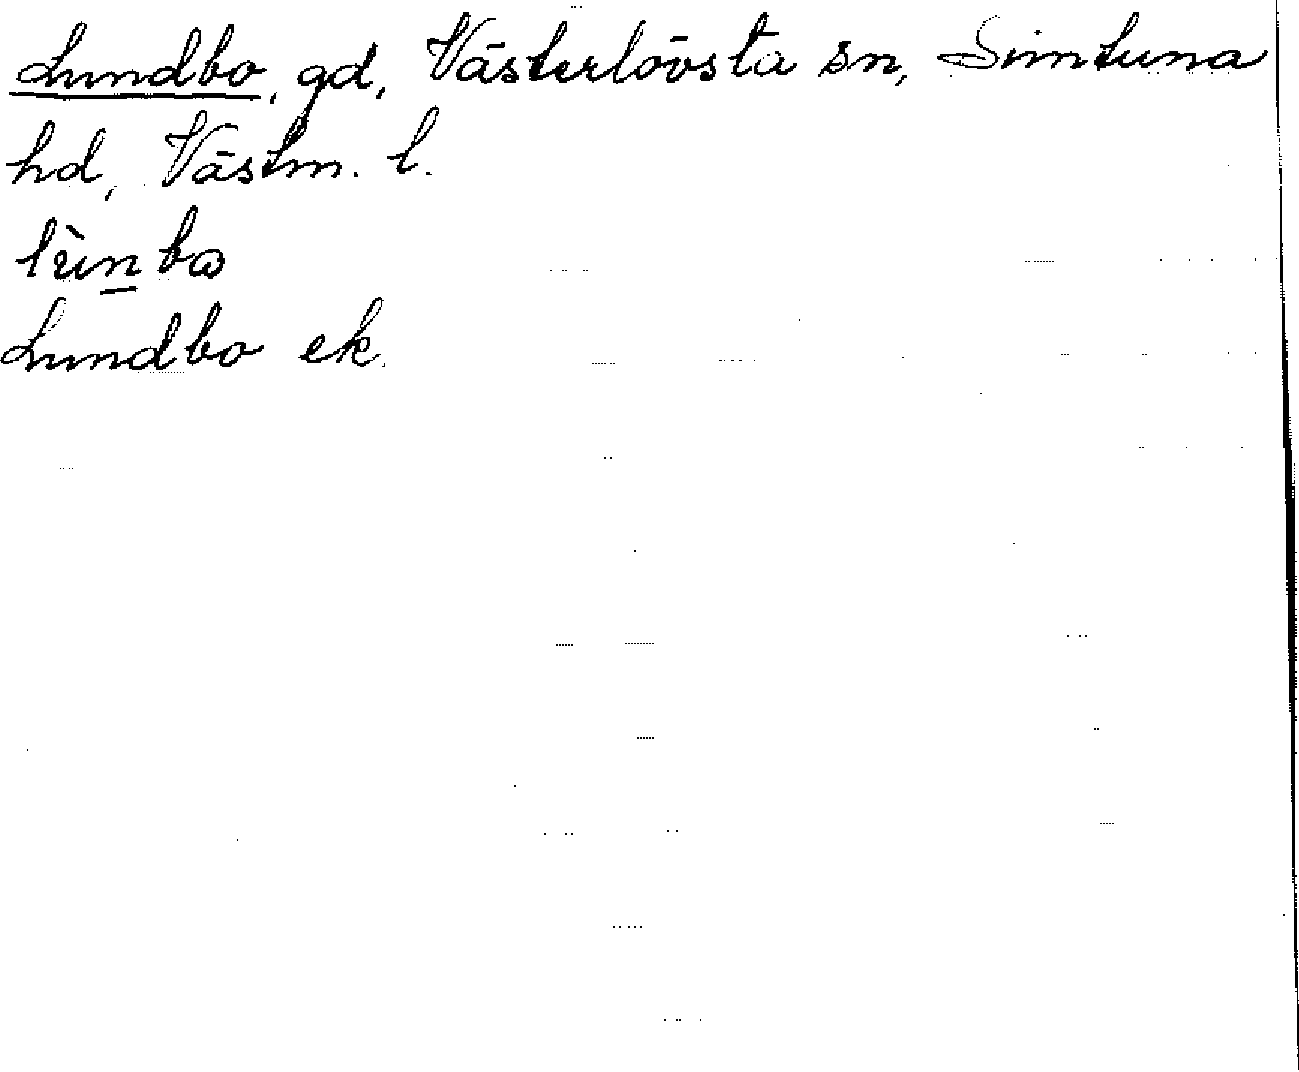 Lundbo, gd, Västerlövsta sn, Simtuna
hd, Västm. l.
lùnbo
Lundbo ek.